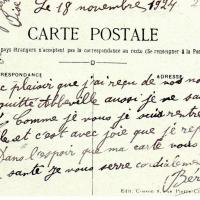 Le 18 novembre 1924
CARTE POSTALE
pays étrangers n'acceptent pas la correspondance au recto (Se renseigner à la Poste
RESPONDANCE
ADRESSE
plaisir que j'ai reçu de vos no
quitte Abbeville aussi je ne sa
Comme je vous je suis rentré
et c'est avec joie que je rép
Dans l'espoir que ma carte vous
santé je vous serre cordialement
Ber
Edit.